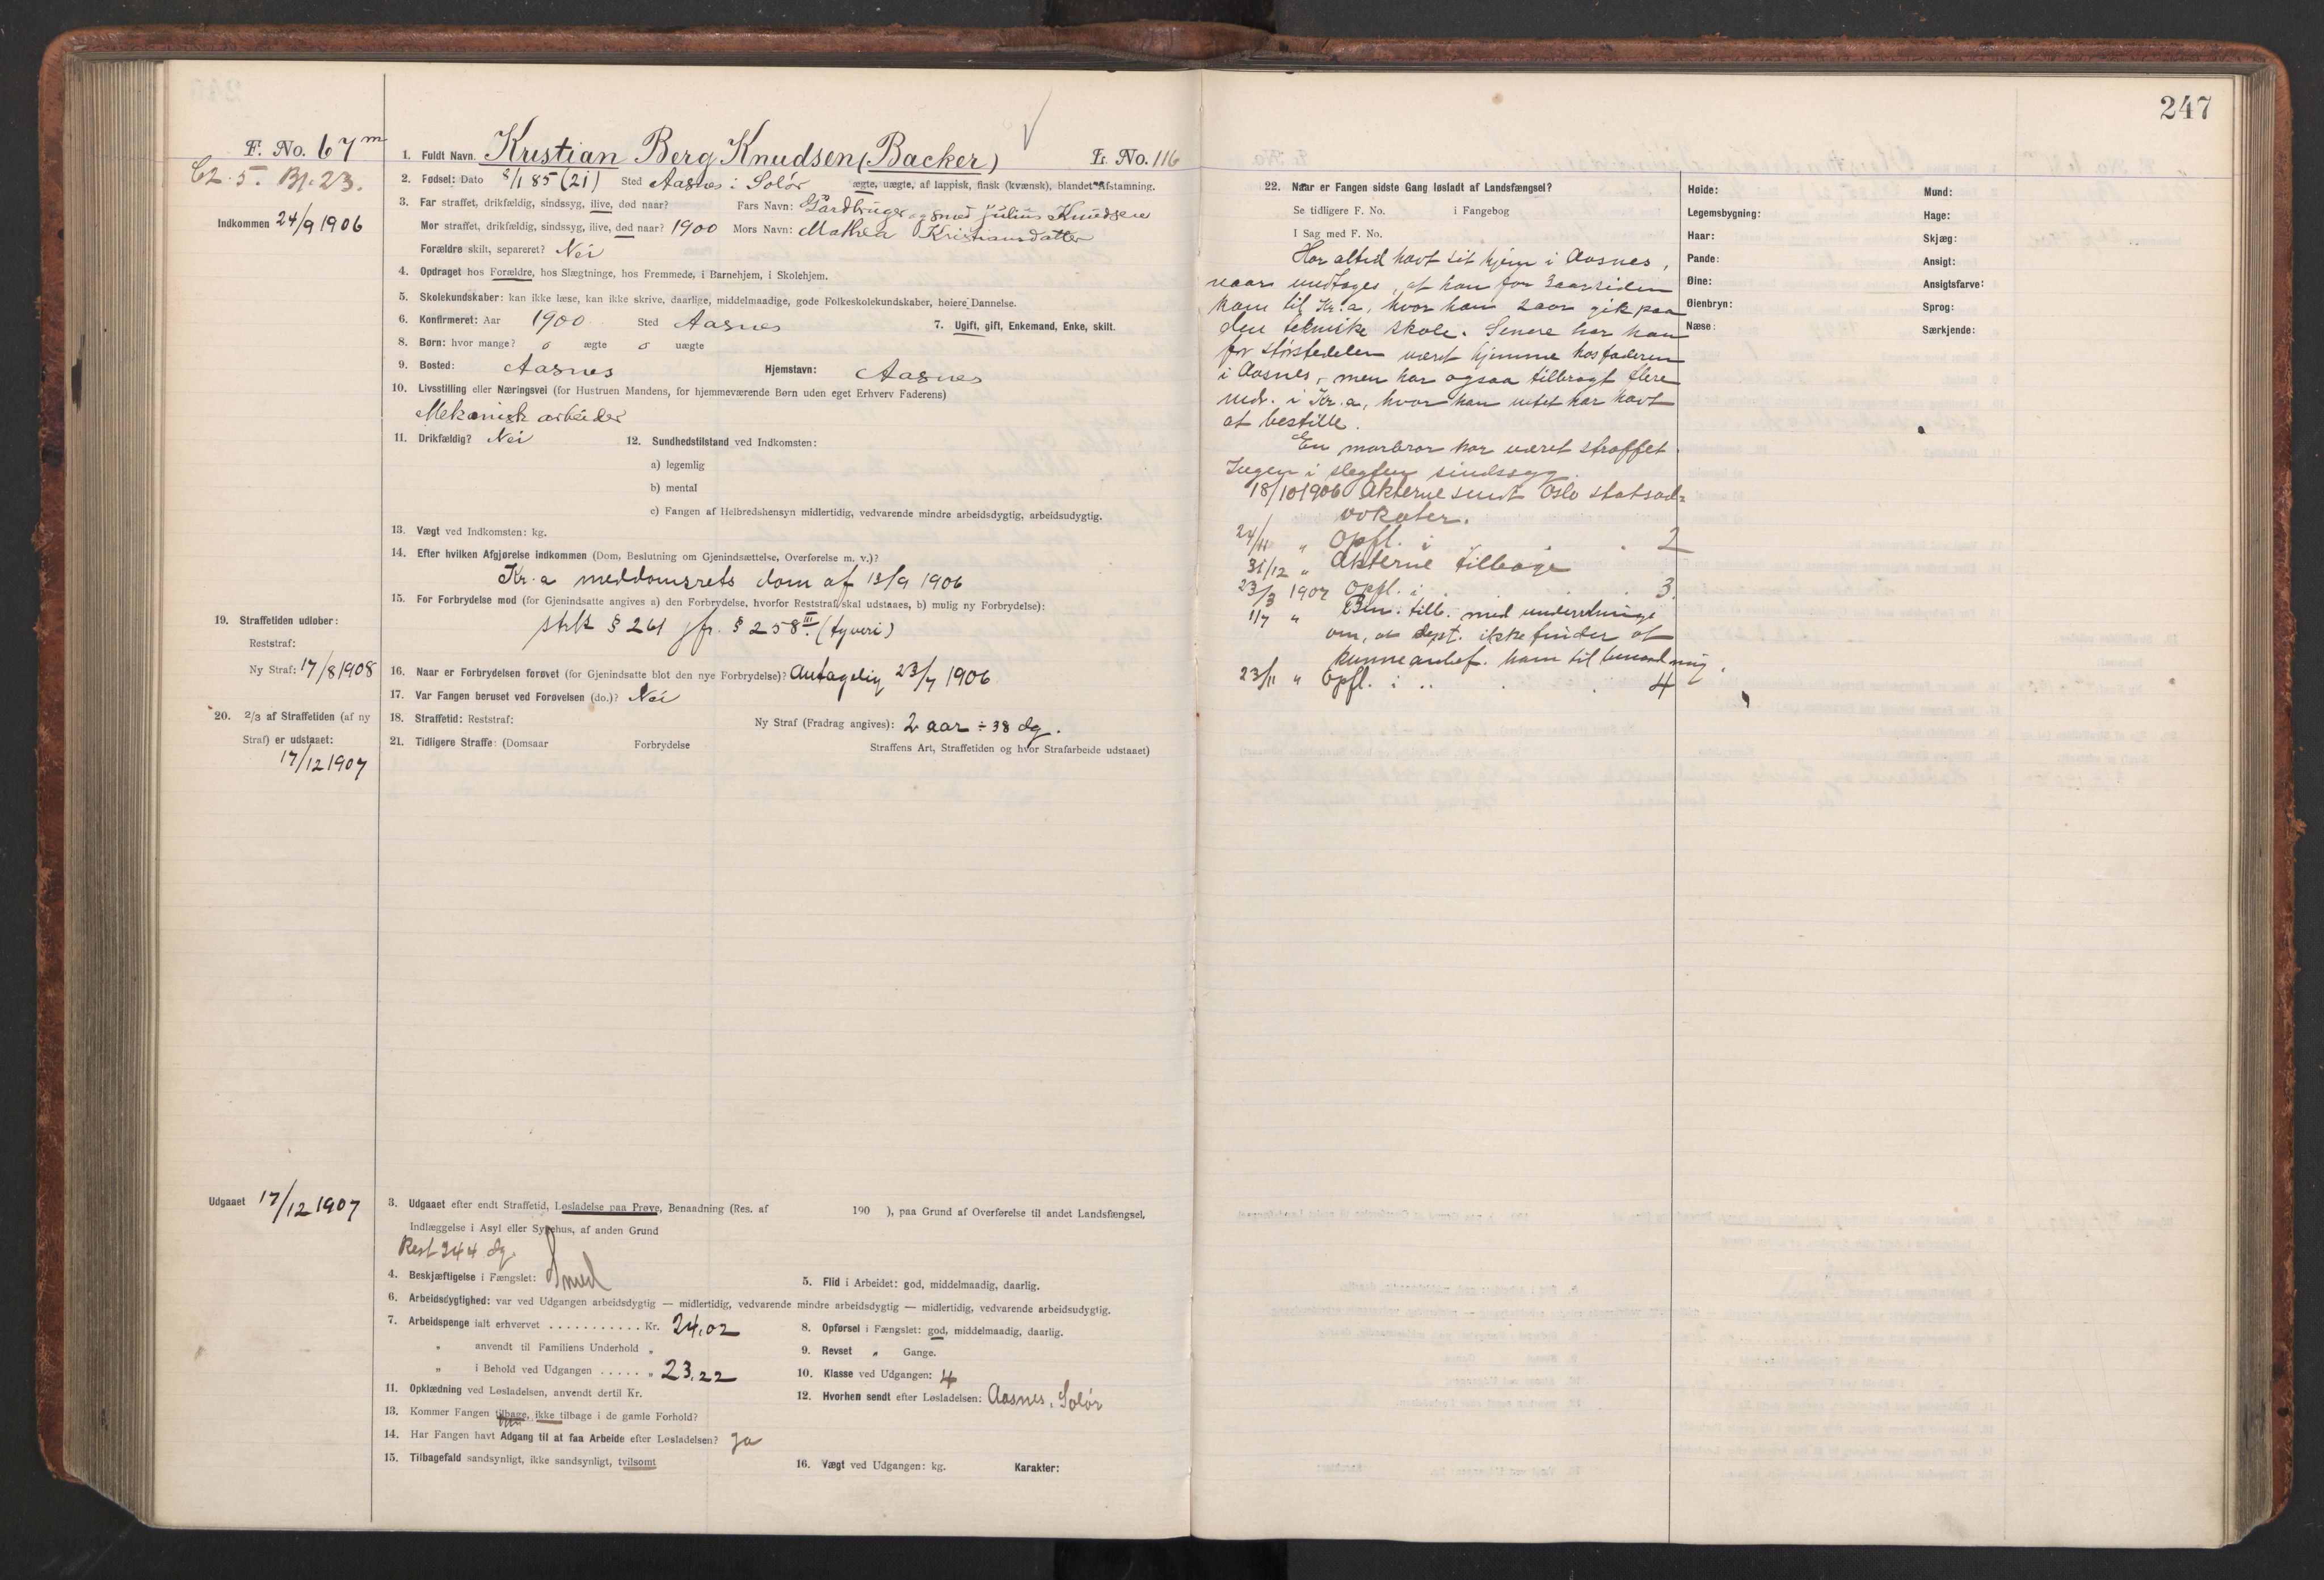 247
F. No. 67 m
Cz. 5. Bl. 23.
Indkommen 24/9 1906
1. Fuldt Navn. Kristian Berg Knudsen (Backer) L. No. 116
2. Fødsel: Dato 8/1 85 (21) Sted Aasnes i Solør ægte, uægte, af lappisk, finsk (kvænsk), blandet Afstamning.
3. Far straffet, drikfældig, sindssyg, ilive, død naar? Fars Navn: Gårdbruger og smed Julius Knudsen
Mor straffet, drikfældig, sindssyg, ilive, død naar? 1900 Mors Navn: Mathea Kristiansdatter
Forældre skilt, separeret? Nei
4. Opdraget hos Forældre, hos Slægtninge, hos Fremmede, i Barnehjem, i Skolehjem.
5. Skolekundskaber: kan ikke læse, kan ikke skrive, daarlige, middelmaadige, gode Folkeskolekundskaber, høiere Dannelse.
6. Konfirmeret: Aar 1900 Sted Aasnes 7. Ugift, gift, Enkemand, Enke, skilt.
8. Børn: hvor mange? o ægte o uægte
9. Bosted: Aasnes Hjemstavn: Aasnes
10. Livsstilling eller Næringsvei (for Hustruen Mandens, for hjemmeværende Børn uden eget Erhverv Faderens)
Mekanisk arbeider
11. Drikfældig? Nei 12. Sundhedstilstand ved Indkomsten:
a) legemlig
b) mental
c) Fangen af Helbredshensyn midlertidig, vedvarende mindre arbeidsdygtig, arbeidsudygtig.
13. Vægt ved Indkomsten: kg.
14. Efter hvilken Afgjørelse indkommen (Dom, Beslutning om Gjenindsættelse, Overførelse m. v.)?
Kr.a meddomsrets dom af 13/9 1906
15. For Forbrydelse mod (for Gjenindsatte angives a) den Forbrydelse, hvorfor Reststraf skal udstaaes, b) mulig ny Forbrydelse):
strk § 261 jfr. § 258 III. (tyveri)
19. Straffetiden udløber:
Reststraf:
Ny Straf: 17/8 1908
16. Naar er Forbrydelsen forøvet (for Gjenindsatte blot den nye Forbrydelse)? Antagelig 23/7 1906
17. Var Fangen beruset ved Forøvelsen (do.)? Nei
20. 2/3 af Straffetiden (af ny
Straf) er udstaaet:
17/12 1907
18. Straffetid: Reststraf: Ny Straf (Fradrag angives): 2 aar ÷ 38 dg.
21. Tidligere Straffe: (Domsaar Forbrydelse Straffens Art, Straffetiden og hvor Strafarbeide udstaaet)
Udgaaet 17/12 1907
3. Udgaaet efter endt Straffetid, Løsladelse paa Prøve, Benaadning (Res. af 190 ), paa Grund af Overførelse til andet Landsfængsel,
Indlæggelse i Asyl eller Sygehus, af anden Grund
Rest 244 dg.
4. Beskjæftigelse i Fængslet: Smed 5. Flid i Arbeidet: god, middelmaadig, daarlig.
6. Arbeidsdygtighed: var ved Udgangen arbeidsdygtig — midlertidig, vedvarende mindre arbeidsdygtig — midlertidig, vedvarende arbeidsudygtig.
7. Arbeidspenge ialt erhvervet . . . . . . . . . . . Kr. 24,02 8. Opførsel i Fængslet: god, middelmaadig, daarlig.
" anvendt til Familiens Underhold " 9. Revset " Gange.
" i Behold ved Udgangen . . . . . " 23,22 10. Klasse ved Udgangen: 4
11. Opklædning ved Løsladelsen, anvendt dertil Kr. 12. Hvorhen sendt efter Løsladelsen: Aasnes, Solør
13. Kommer Fangen tilbage, ikke tilbage i de gamle Forhold?
14. Har Fangen havt Adgang til at faa Arbeide efter Løsladelsen? Ja
15. Tilbagefald sandsynligt, ikke sandsynligt, tvilsomt 16. Vægt ved Udgangen: kg. Karakter:
22. Naar er Fangen sidste Gang løsladt af Landsfængsel?
Se tidligere F. No. i Fangebog
I Sag med F. No.
Har altid havt sit hjem i Aasnes,
naar undtages, at han for 3aarsiden
kom til Kr.a, hvor han 2aar gik paa
den tekniske skole. Senere har han
for størstedelen været hjemme hos faderen
i Aasnes, men har ogsaa tilbragt flere
mdr. i Kr.a, hvor han intet har havt
at bestille.
En morbror har været straffet.
Ingen i slegten sindssyg.
18/10 1906 Akterne sendt Oslo statsad=
vokater.
24/11 " Opfl. i . 2
31/12 " Akterne tilbage
23/3 1907 Opfl. i . . . 3.
1/7 " Ben. tilb. med underretning
om, at dept. ikke finder at
kunne anbef. ham til benaadning.
23/11 " Opfl. i .. . . 4
Høide: Mund:
Legemsbygning: Hage:
Haar: Skjæg:
Pande: Ansigt:
Øine: Ansigtsfarve:
Øienbryn: Sprog:
Næse: Særkjende: